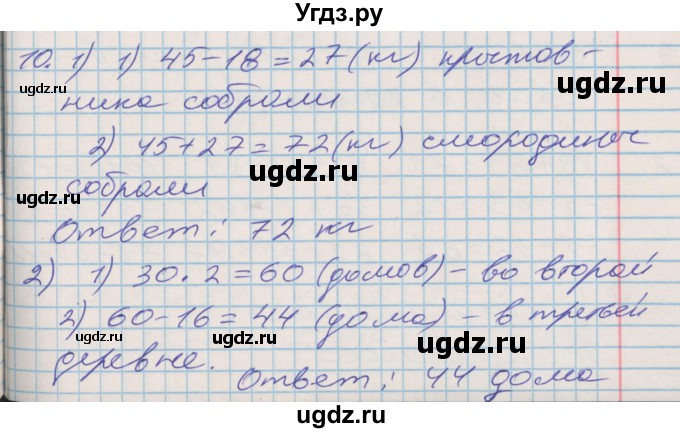 Угдз.ру
10. 1) 1) 45-18=27(кг) крыжов-
ugdz.ru ugdz.ru
ника собрали
2) 45+27=72(кг) смородины
ugdz.ru ugdz.ru
собрали
Ответ: 72 кг
ugdz.ru
2) 1) 30·2=60 (домов) – во второй
2) 60-16=44 (дома) – в третьей
ugdz.ru ugdz.ru
деревне.
Ответ: 44 дома
ugdz.ru
ugdz.ru